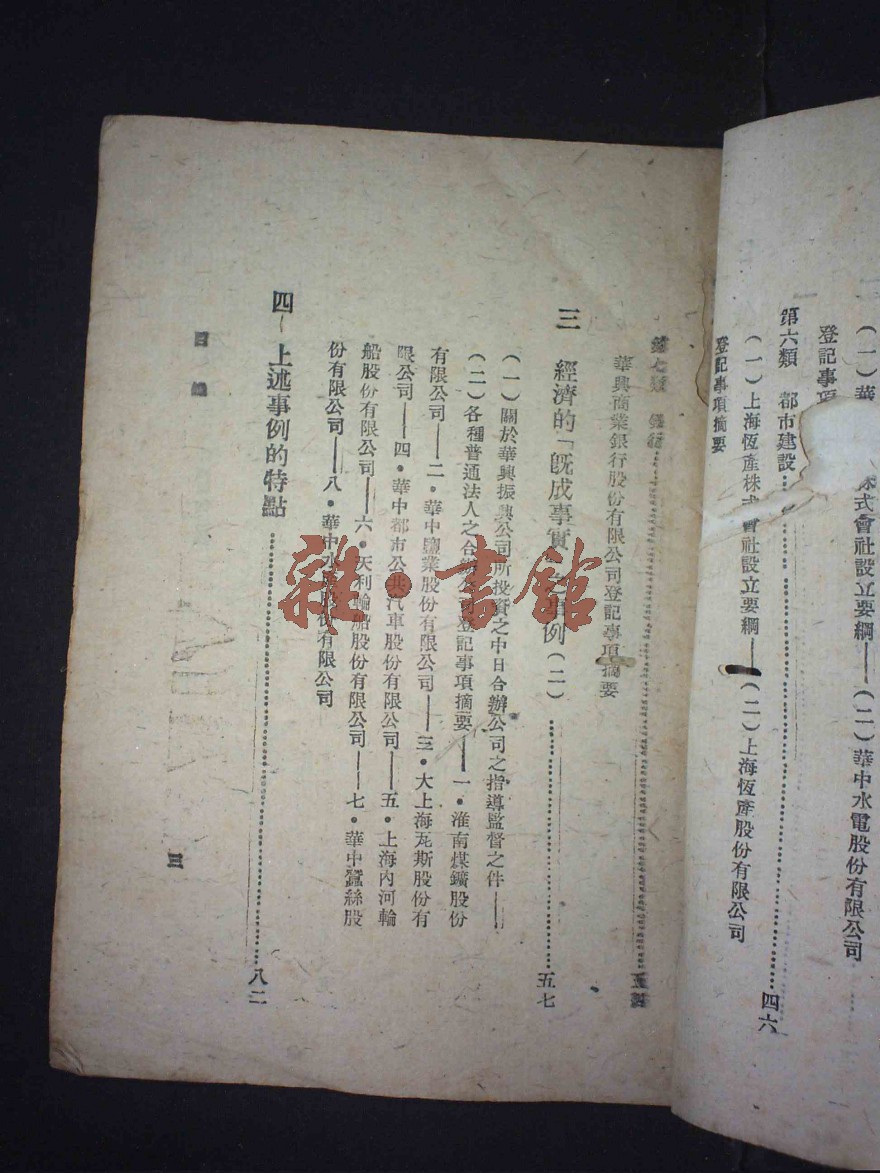 (一)華 株式會社設立要綱——(二)華中水電股份有限公司
登記事項
第六類 都市建設……四六
(一)上海恆產株式會社設立要綱——(二)上海恆產股份有限公司
登記事項摘要
第七類 銀行……
華興商業銀行股份有限公司登記事項摘要
三 經濟的「既成事實 事例(二)……五七
(一)關於華興振興公司所投資之中日合辦公司之指導監督之件——
(二)各種普通法人之合辦公司登記事項摘要——一•淮南煤鑛股份
有限公司——二•華中鹽業股份有限公司——三•大上海瓦斯股份有
限公司——四•華中都市公共汽車股份有限公司——五•上海內河輪
船股份有限公司——六•天利輪船股份有限公司——七•華中蠶絲股
份有限公司——八•華中水產股份有限公司
四 上述事例的特點……八二
目 錄
三
雜•書館